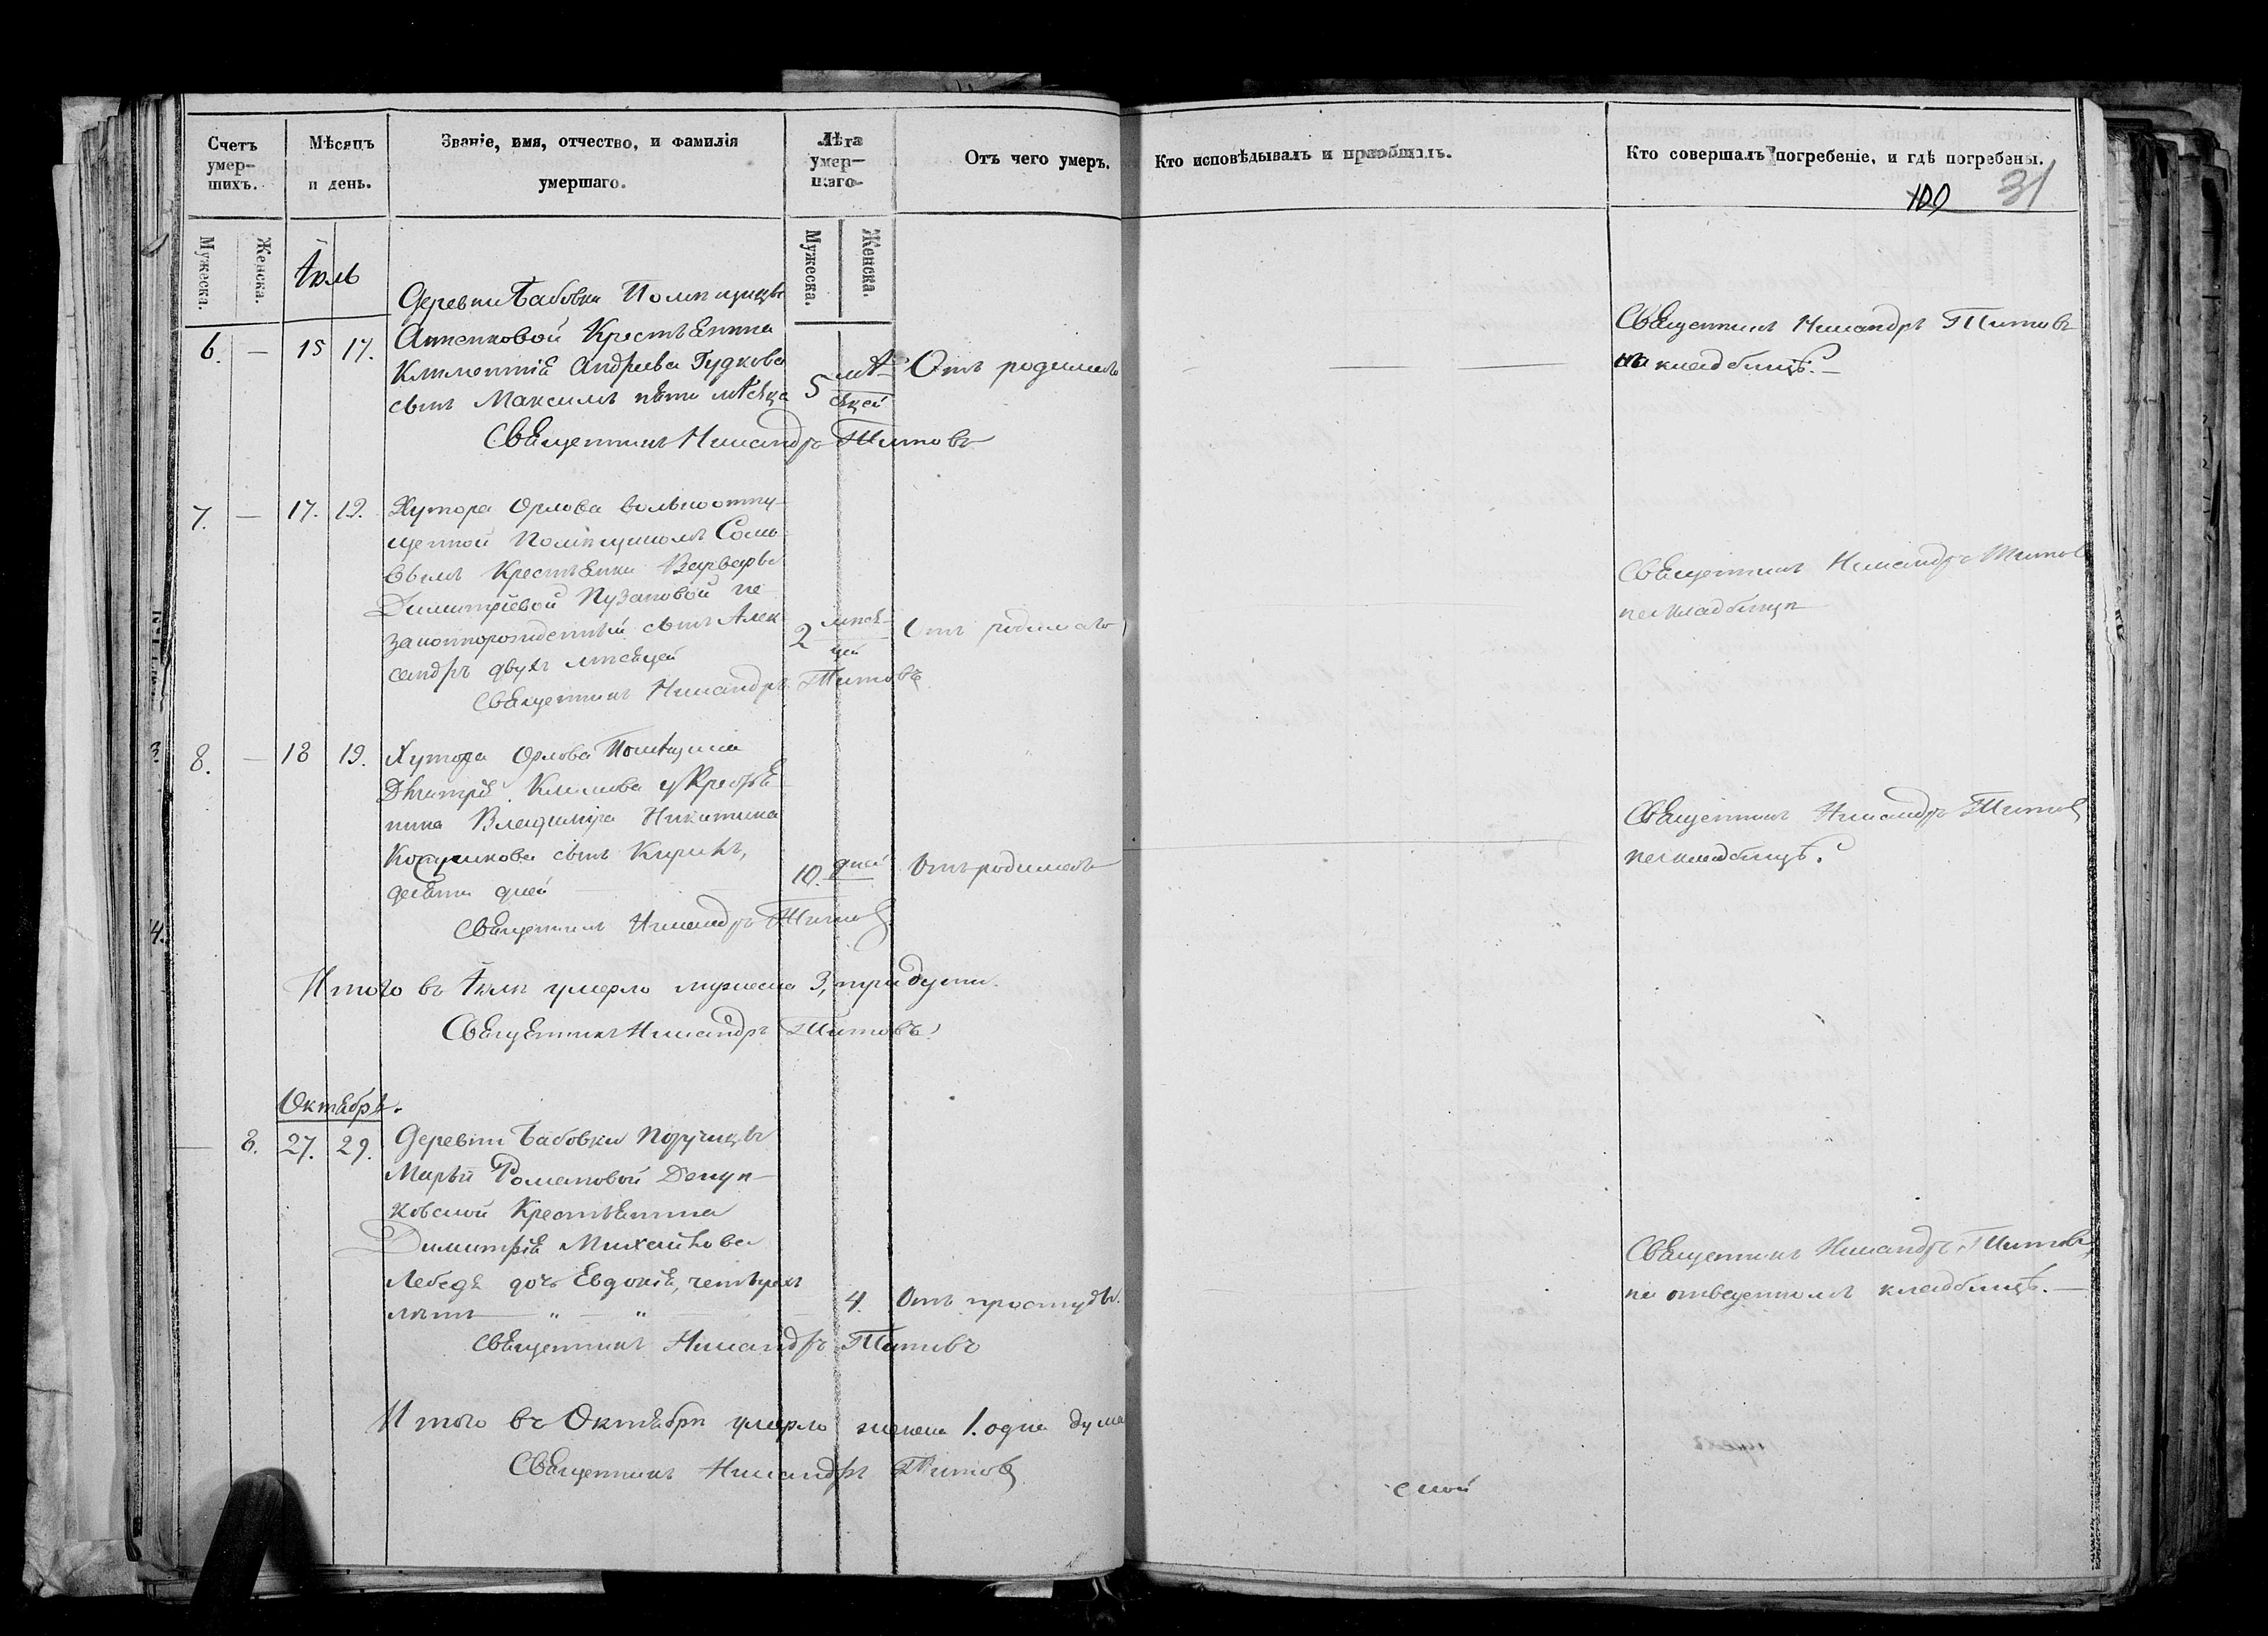 Счетъ умер-шихъ.
Мѣсяцъ и день.
Званіе, имя, отчество, и фамилія умершаго.
Лѣта умер-шаго
Отъ чего умеръ.
Кто исповѣдывалъ и пріобщалъ.
Кто совершалъ погребеніе, и гдѣ погребены.
100 31
Мужеска.
Женска.
Мужеска.
Женска.
Іюль
Деревни Бабовки Помѣщицы
6. — 15 17. Анненковой Крестьянина
Климентія Андреева Гудкова
сынъ Максимъ пяти мѣсяца
5 мѣ-сяцей
Отъ родимца
Священникъ Никандръ Титовъ
на кладбищѣ. —
Священникъ Никандръ Титовъ
7. — 17. 19. Хутора Орлова вольноотпу-
щенной Помѣщикомъ Соло
вьемъ Крестьянки Варвары
Димитріевой Пузановой не
законнорожденный сынъ Алек
сандръ двухъ мѣсяцей
2 мѣся-цей
Отъ родимца
Священникъ Никандръ Титовъ
на кладбищѣ
Священникъ Никандръ Титовъ
8. — 18 19. Хутора Орлова Помѣщика
Дмитрія Климова у Крестья
нина Владиміра Никитина
сынъ Кирикъ,
десяти дней
10. дней
Отъ родимца
Священникъ Никандръ Титовъ
на кладбищѣ.
Священникъ Никандръ Титовъ
Итого въ Іюлѣ умерло мужеска 3, три души.
Священникъ Никандръ Титовъ
Октябрь.
— 8. 27. 29. Деревни Бабовки Поручицы
Марьи Романовой
Крестьянина
Димитрія Михайлова
Лебедя дочь Евдокія, четырехъ
лѣтъ — " — "
4. Отъ простуды.
Священникъ Никандръ Титовъ
на отведенномъ кладбищѣ. —
Священникъ Никандръ Титовъ
Итого въ Октябрѣ умерло женска 1. одна душа
Священникъ Никандръ Титовъ
3.
4.